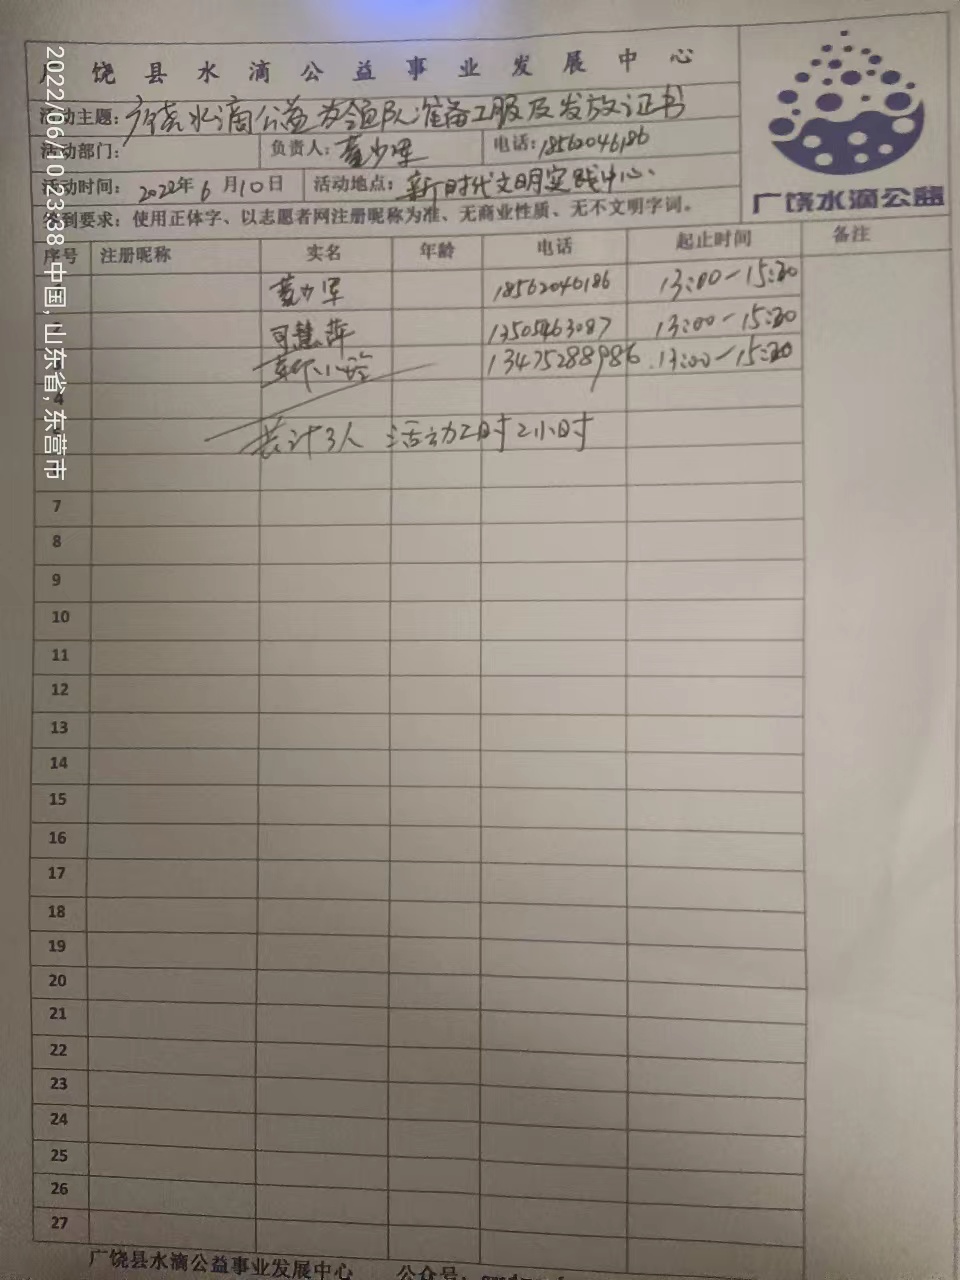 广饶县水滴公益事业发展中心
活动主题：广饶水滴公益为领队准备工服及发放证书
活动部门： 负责人： 电话：18562046186
活动时间：2022年6月10日 活动地点：新时代文明实践中心.
签到要求：使用正体字、以志愿者网注册昵称为准、无商业性质、无不文明字词。
广饶水滴公益
序号 注册昵称 实名 年龄 电话 起止时间 备注
18562046186 13:00-15:30
司慧萍 13505463087 13:00-15:30
13475288986 13:00-15:30
4
共计3人 活动工时2小时
7
8
9
10
11
12
13
14
15
16
17
18
19
20
21
22
23
24
25
26
27
广饶县水滴公益事业发展中心 公众号：
2022/06/10 23:38 中国, 山东省, 东营市